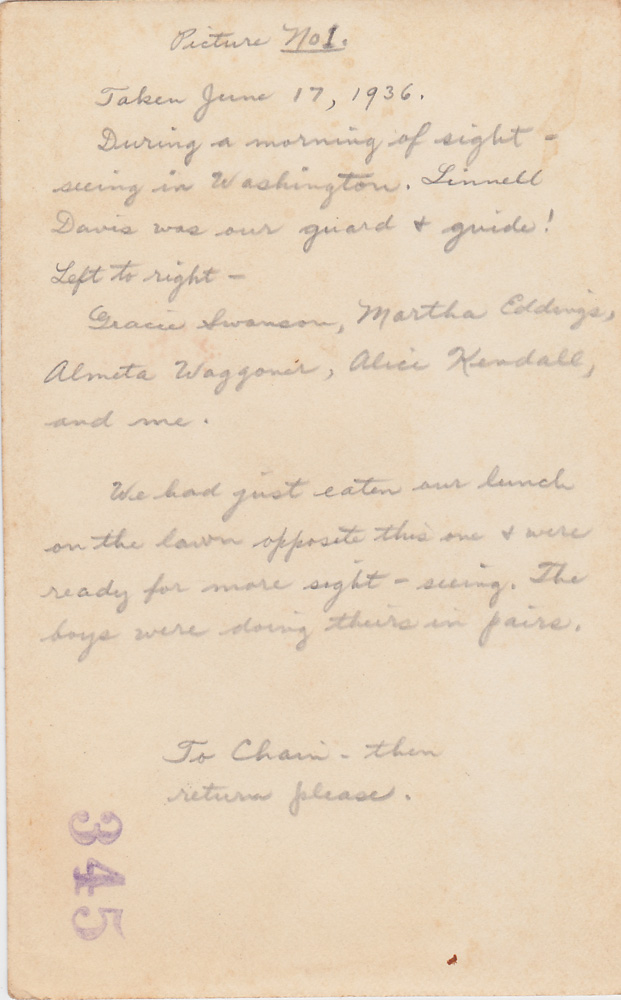 Picture No1.
Taken June 17, 1936.
During a morning of sight-
seeing in Washington. Linnell
Davis was our guard & guide!
Left to right -
Gracie Swanson, Martha Eddings,
Almeta Waggoner, Alice Kendall,
and me.
We had just eaten our lunch
on the lawn opposite this one & were
ready for more sight-seeing. The
boys were doing theirs in pairs.
To Chain - then
return please.
345